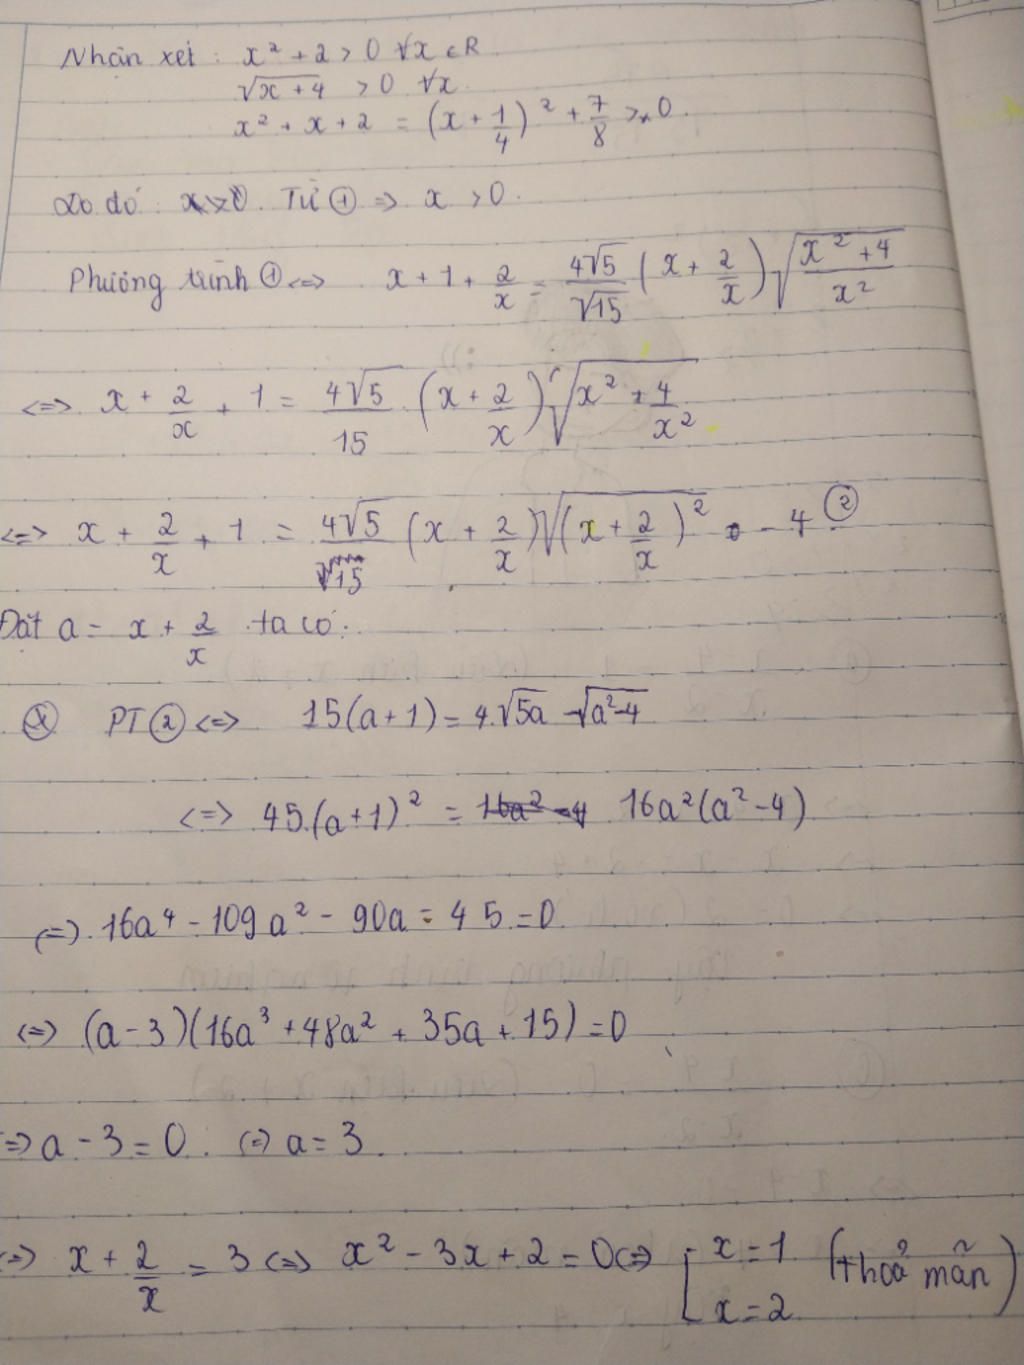 Nhận xét : x² + 2 > 0 ∀x ∈ R
√(x+4) > 0 ∀x.
x² + x + 2 = (x + 1/4)² + 7/8 > 0.
Do đó : x > 0. Từ ① => x > 0.
Phương trình ① <=> x + 1 + 2/x = 4√5/√15 (x + 2/x) √((x² + 4)/x²)
<=> x + 2/x + 1 = 4√5/15 (x + 2/x) √(x² + 4/x²)
<=> x + 2/x + 1 = 4√5/√15 (x + 2/x) √((x + 2/x)² - 4 ②
Đặt a = x + 2/x . ta có :
ⓧ PT ② <=> 15(a+1) = 4.√5a √(a²-4)
<=> 45.(a+1)² = 16a²(a²-4)
(=). 16a⁴ - 109a² - 90a - 45 = 0
<=> (a-3)(16a³ + 48a² + 35a + 15) = 0
=> a - 3 = 0. (=) a = 3.
=> x + 2/x = 3 <=> x² - 3x + 2 = 0 <=> [ x = 1 (thoả mãn)
x = 2